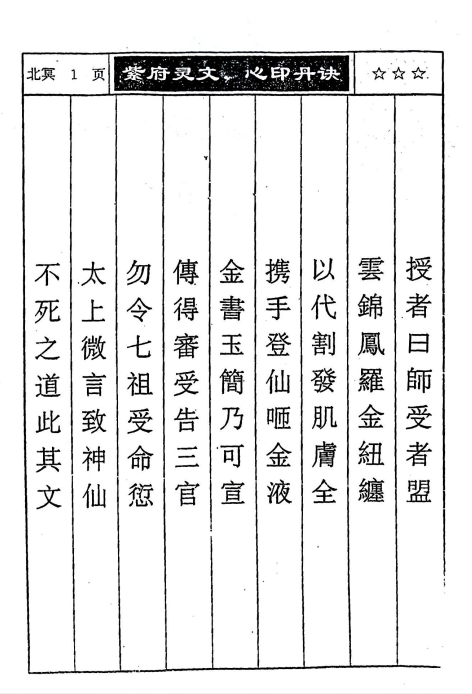 北冥 1 页
紫府灵文、心印丹诀
☆☆☆
授者曰師受者盟
雲錦鳳羅金紐纏
以代割發肌膚全
携手登仙咂金液
金書玉簡乃可宣
傳得審受告三官
勿令七祖受命愆
太上微言致神仙
不死之道此其文